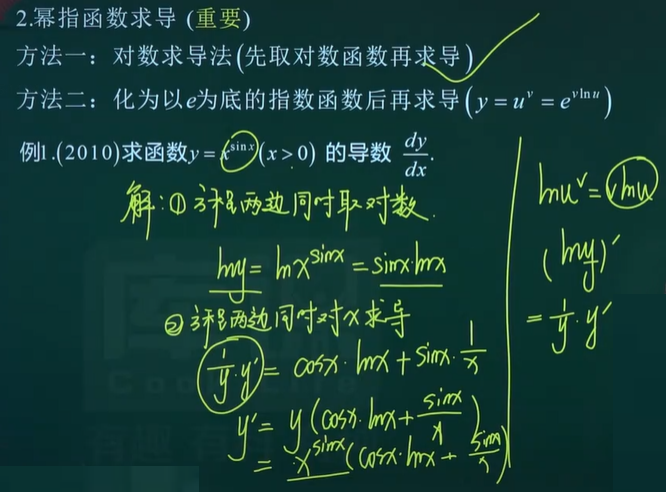 2.幂指函数求导 (重要)
方法一：对数求导法(先取对数函数再求导)
方法二：化为以e为底的指数函数后再求导(y=u^v=e^{v ln u})
例1.(2010)求函数y=x^{sin x}(x>0) 的导数 dy/dx.
解:① 方程两边同时取对数.
lny = lnx^{sinx} = sinx·lnx
② 方程两边同时对x求导
1/y·y' = cosx·lnx + sinx·1/x
y' = y(cosx·lnx + sinx/x)
= x^{sinx}(cosx·lnx + sinx/x)
lnu^v = vlnu
(lny)'
= 1/y·y'